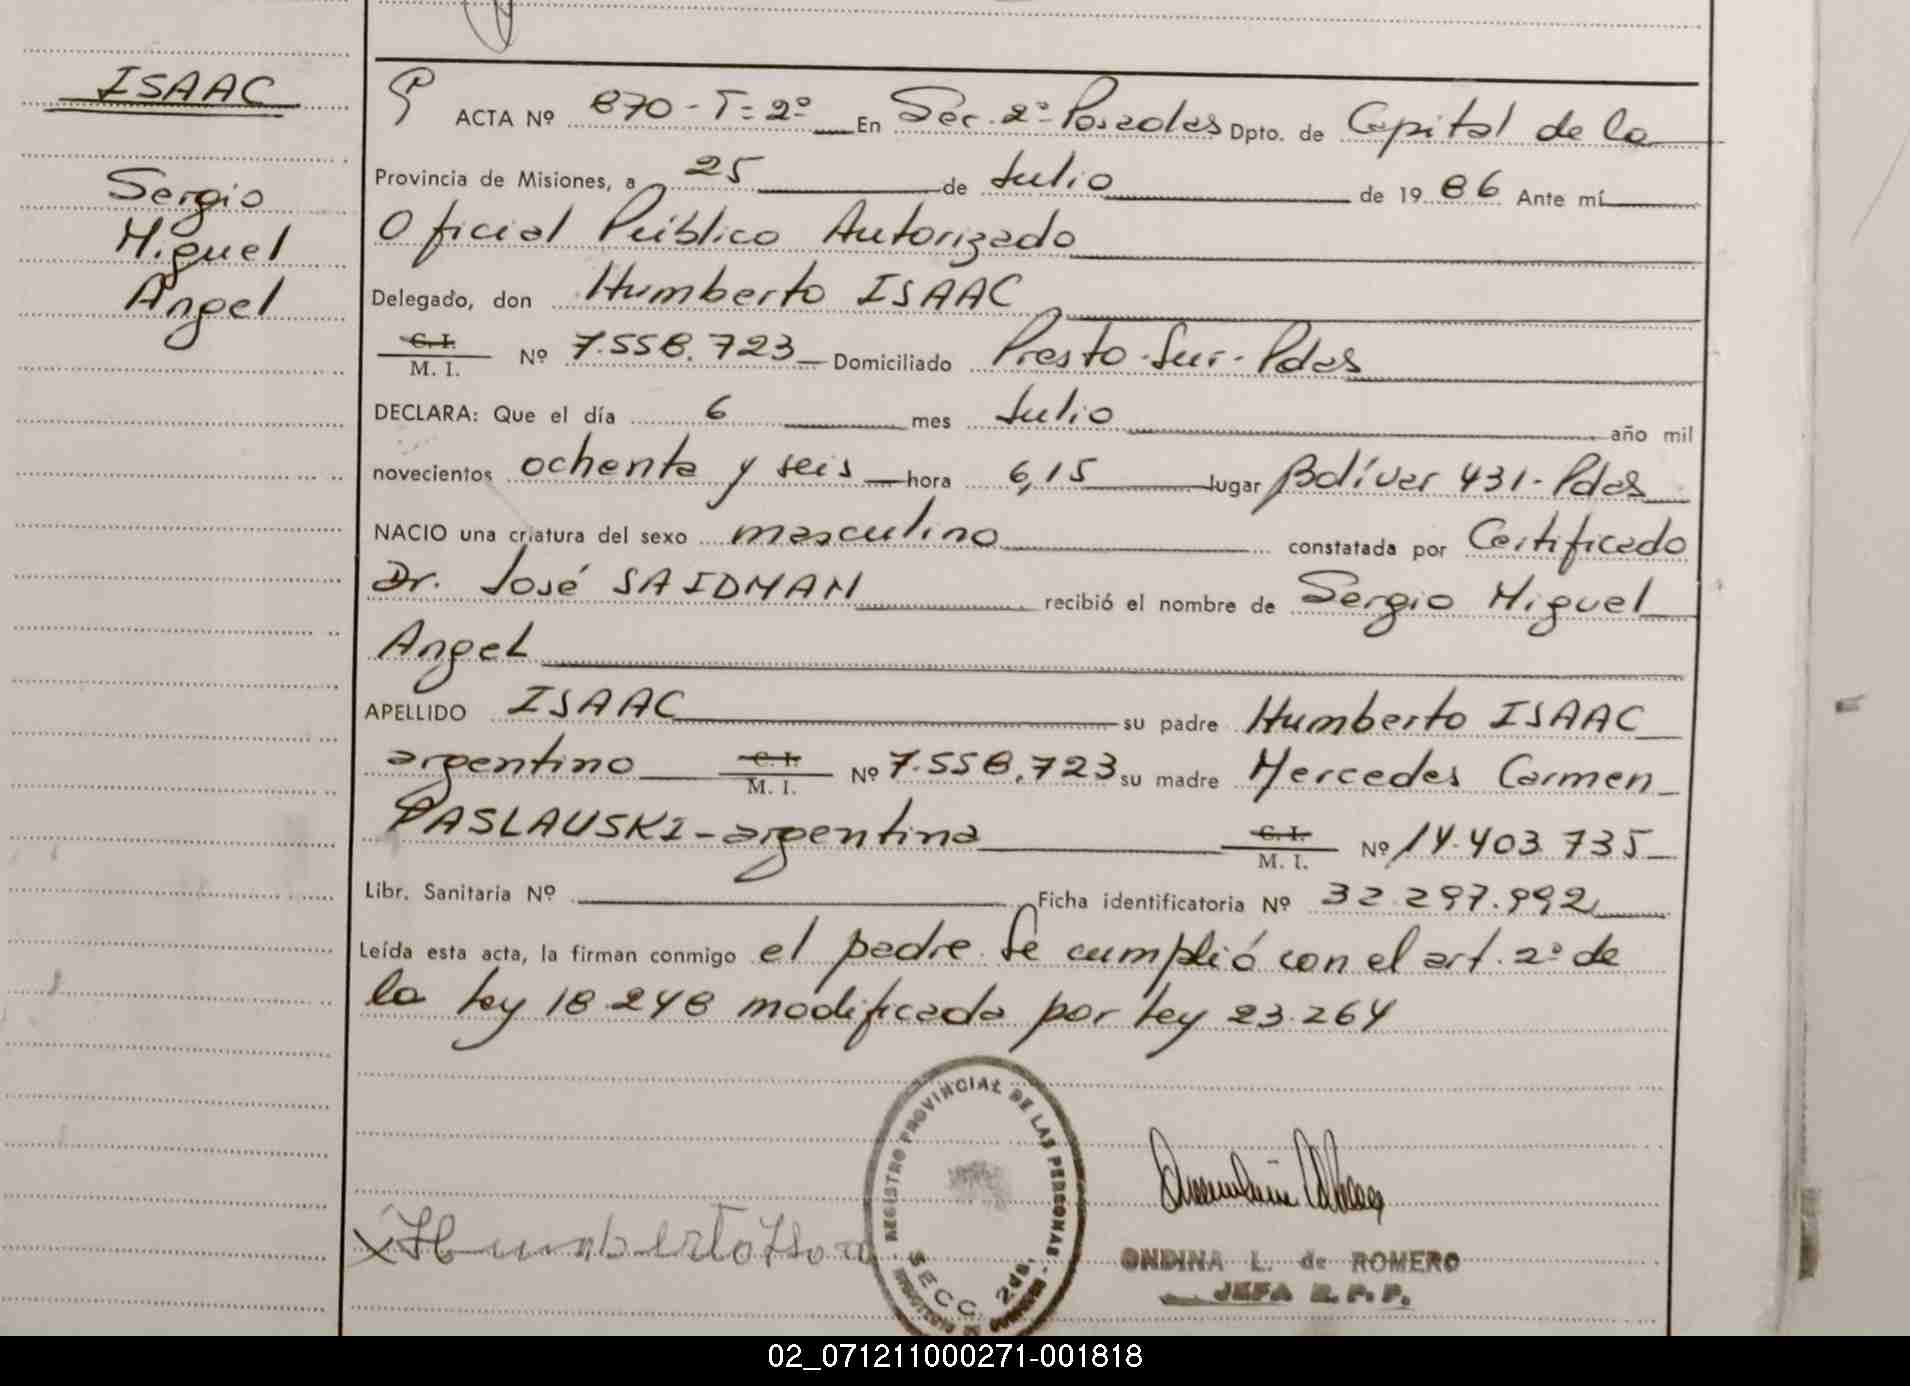 ISAAC
Sergio
Miguel
Angel
ACTA Nº 870 - T = 2º En Sec. 2º Posadas Dpto. de Capital de la
Provincia de Misiones, a 25 de Julio de 1986 Ante mí
Oficial Público Autorizado
Delegado, don Humberto ISAAC
C. I.
M. I. Nº 7.558.723 Domiciliado Presto Sur - Pdas
DECLARA: Que el día 6 mes Julio año mil
novecientos ochenta y seis hora 6,15 lugar Bolívar 431 - Pdas
NACIO una criatura del sexo masculino constatada por Certificado
Dr. José SAIDMAN recibió el nombre de Sergio Miguel
Angel
APELLIDO ISAAC su padre Humberto ISAAC
argentino C. I. M. I. Nº 7.558.723 su madre Mercedes Carmen
PASLAUSKI - argentina C. I. M. I. Nº 14.403.735
Libr. Sanitaria Nº Ficha identificatoria Nº 32.297.992
Leída esta acta, la firman conmigo el padre. Se cumplió con el art. 2º de
la Ley 18.248 modificada por Ley 23.264
REGISTRO PROVINCIAL DE LAS PERSONAS
SECC. 2da.
X Humberto Isaac
ONDINA L. de ROMERO
JEFA R. P. P.
02_071211000271-001818